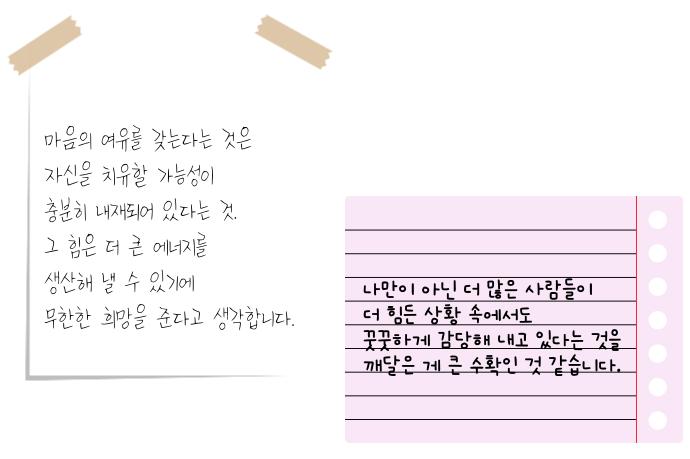 마음의 여유를 갖는다는 것은
자신을 치유할 가능성이
충분히 내재되어 있다는 것.
그 힘은 더 큰 에너지를
생산해 낼 수 있기에
무한한 희망을 준다고 생각합니다.
나만이 아닌 더 많은 사람들이
더 힘든 상황 속에서도
꿋꿋하게 감당해 내고 있다는 것을
깨달은 게 큰 수확인 것 같습니다.